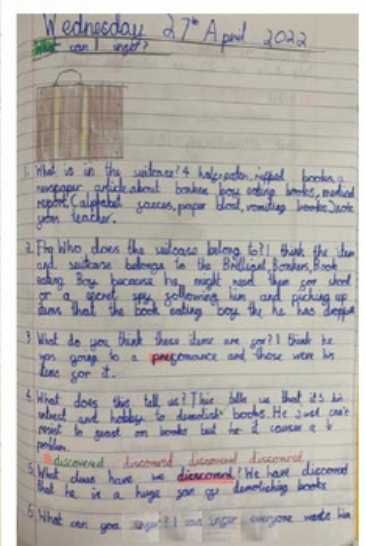 Wednesday 27th April 2022
What can I infer?
1. What is in the suitcase? 4 half eaten, ripped books, a
newspaper article about bonkers boy eating books, medical
report (alphabet faeces, paper blood, vomiting books) note
from teacher.
2. Who does the suitcase belong to? I think the item
and suitcase belongs to the Brilliant, Bonkers, Book
eating Boy because he might need them for school
or a secret spy following him and picking up
items that the book eating boy the he has dropped
3. What do you think these items are for? I think he
was going to a and those were his
items for it.
4. What does this tell us? This tells us that it's his
intrest and hobby to demolish books. He just can't
resist to feast on books but he it causes a
problem.
discovered discovered discovered discovered
5. What have we ? We have
that he is a huge fan of demolishing books
6. What can you infer? I can infer everyone wants him